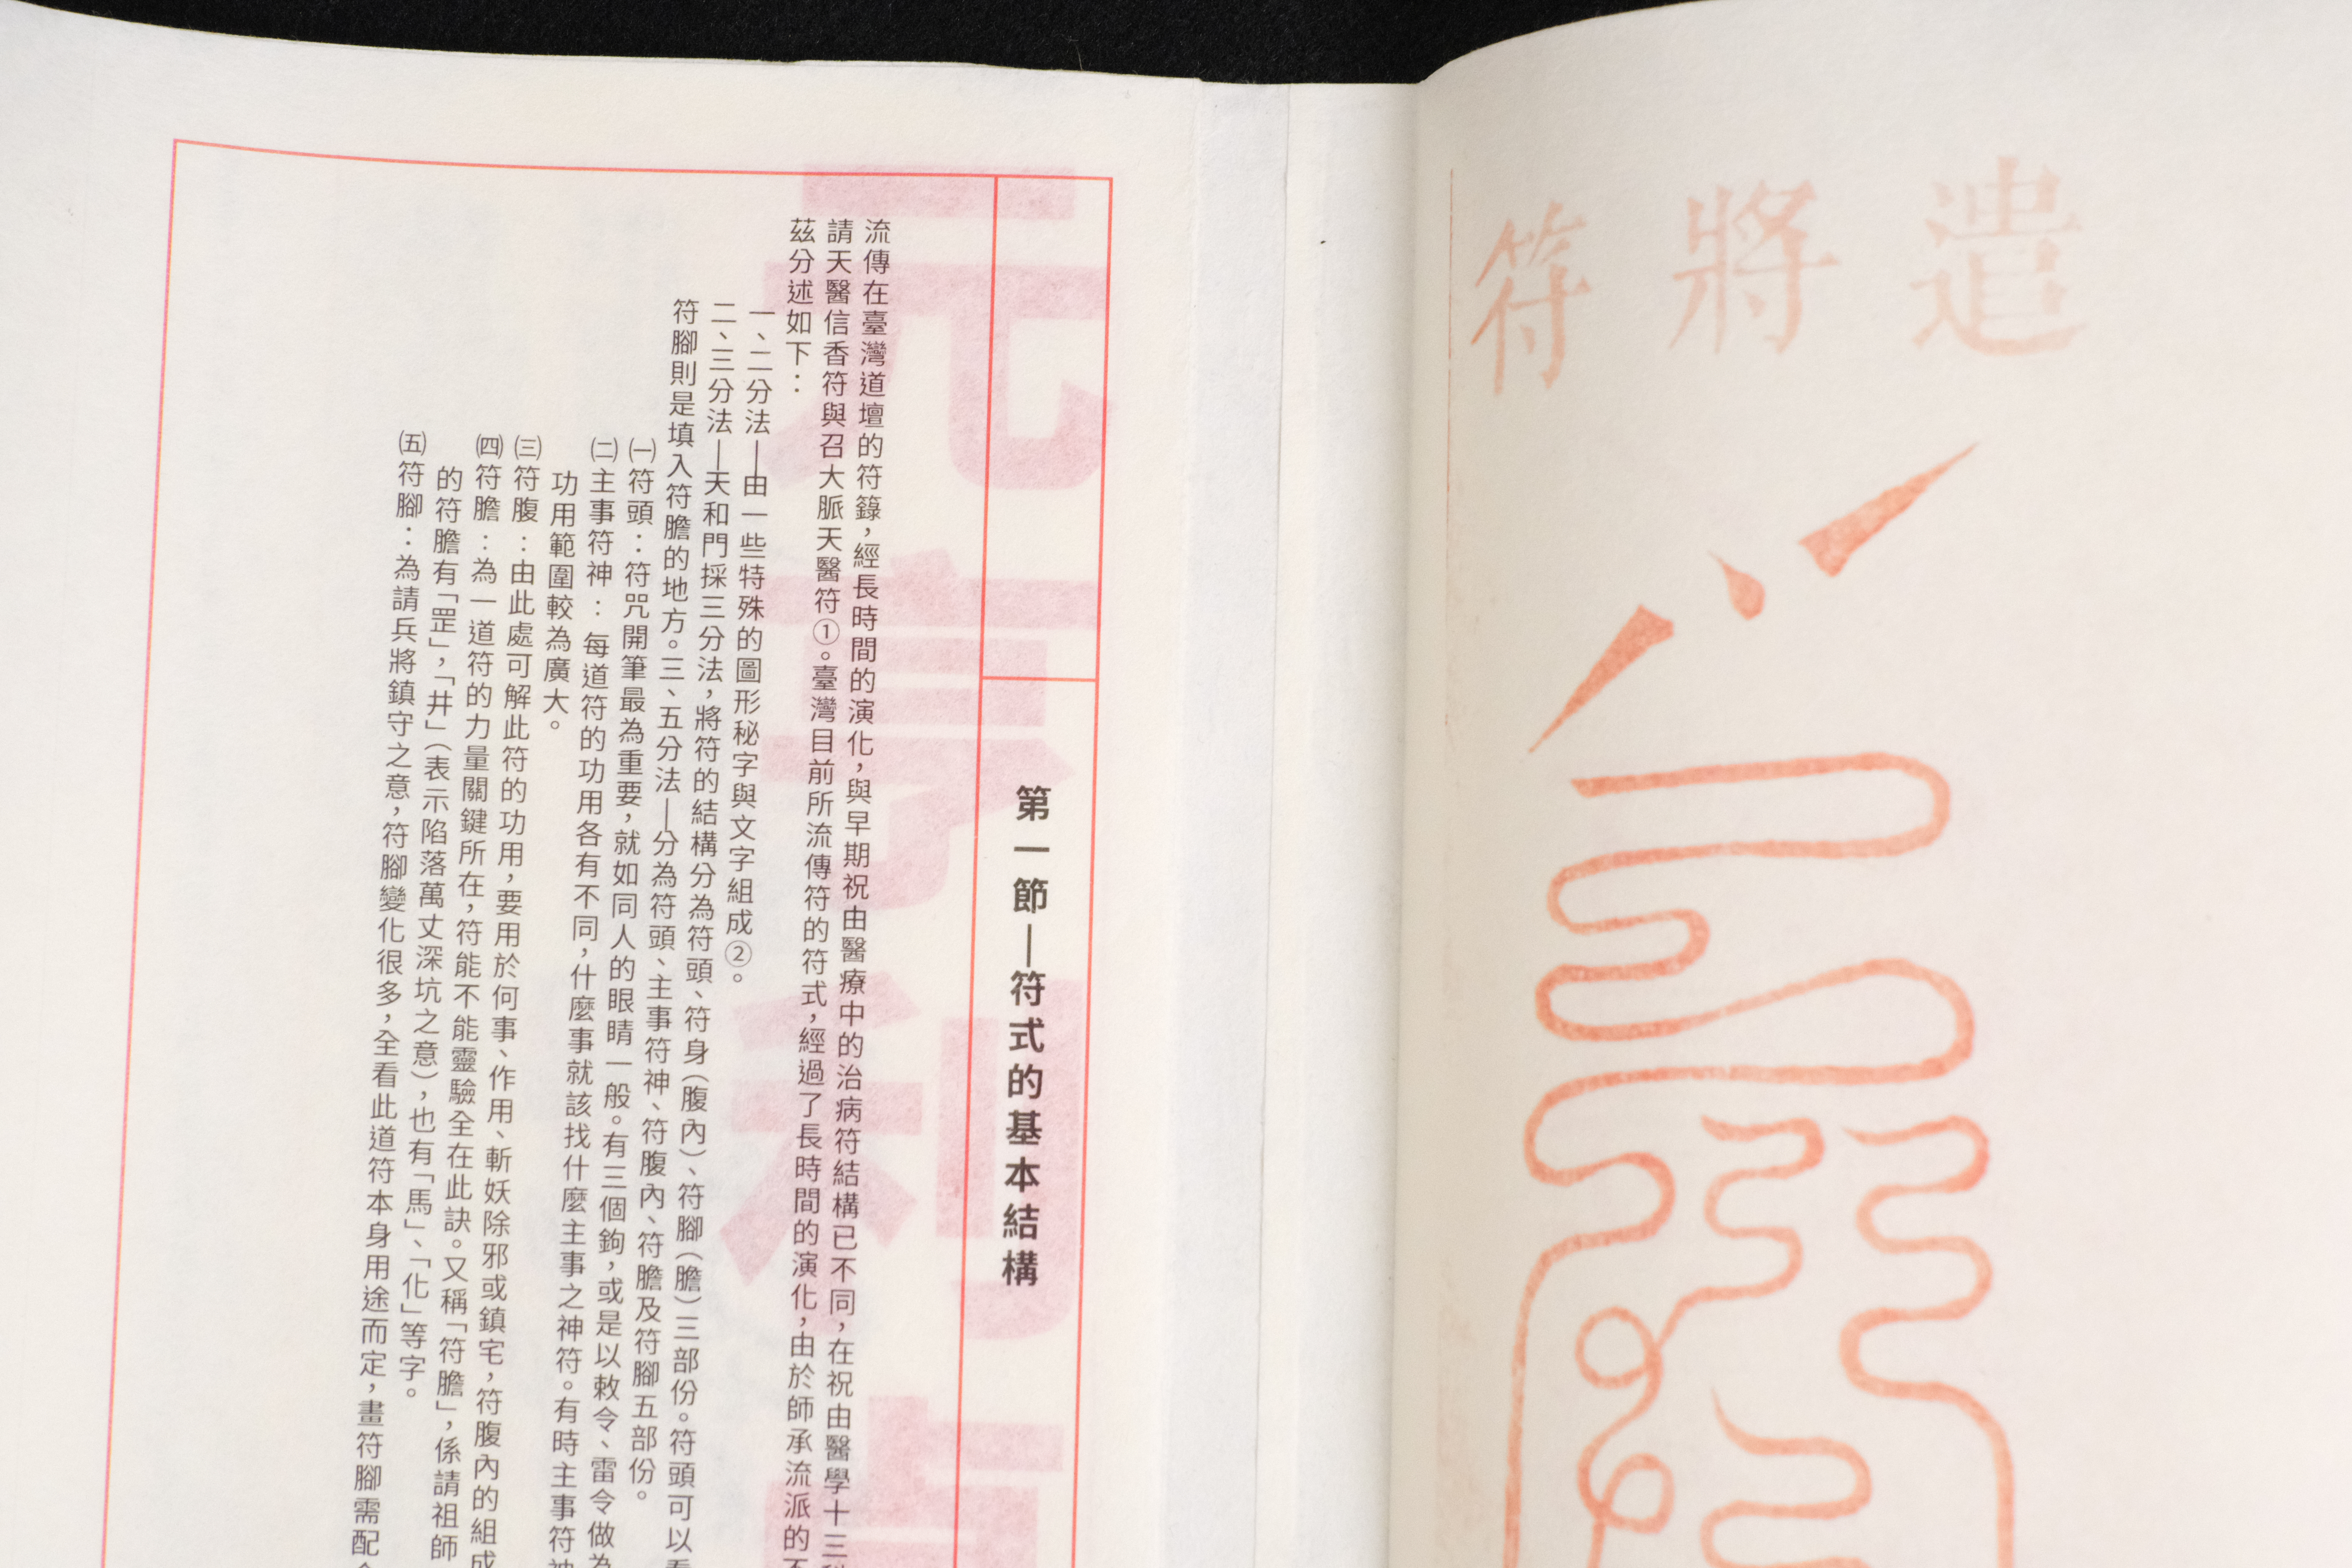 遣將符
第一節—符式的基本結構
流傳在臺灣道壇的符籙，經長時間的演化，與早期祝由醫療中的治病符結構已不同，在祝由醫學十三
請天醫信香符與召大脈天醫符①。臺灣目前所流傳符的符式，經過了長時間的演化，由於師承流派的
茲分述如下：
一、二分法—由一些特殊的圖形秘字與文字組成②。
二、三分法—天和門採三分法，將符的結構分為符頭、符身（腹內）、符腳（膽）三部份。符頭可以
符腳則是填入符膽的地方。三、五分法—分為符頭、主事符神、符腹內、符膽及符腳五部份。
㈠符頭：符咒開筆最為重要，就如同人的眼睛一般。有三個鉤，或是以敕令、雷令做為
㈡主事符神：每道符的功用各有不同，什麼事就該找什麼主事之神符。有時主事符神
功用範圍較為廣大。
㈢符腹：由此處可解此符的功用，要用於何事、作用、斬妖除邪或鎮宅，符腹內的組成
㈣符膽：為一道符的力量關鍵所在，符能不能靈驗全在此訣。又稱「符膽」，係請祖師
的符膽有「罡」，「井」（表示陷落萬丈深坑之意），也有「馬」、「化」等字。
㈤符腳：為請兵將鎮守之意，符腳變化很多，全看此道符本身用途而定，畫符腳需配